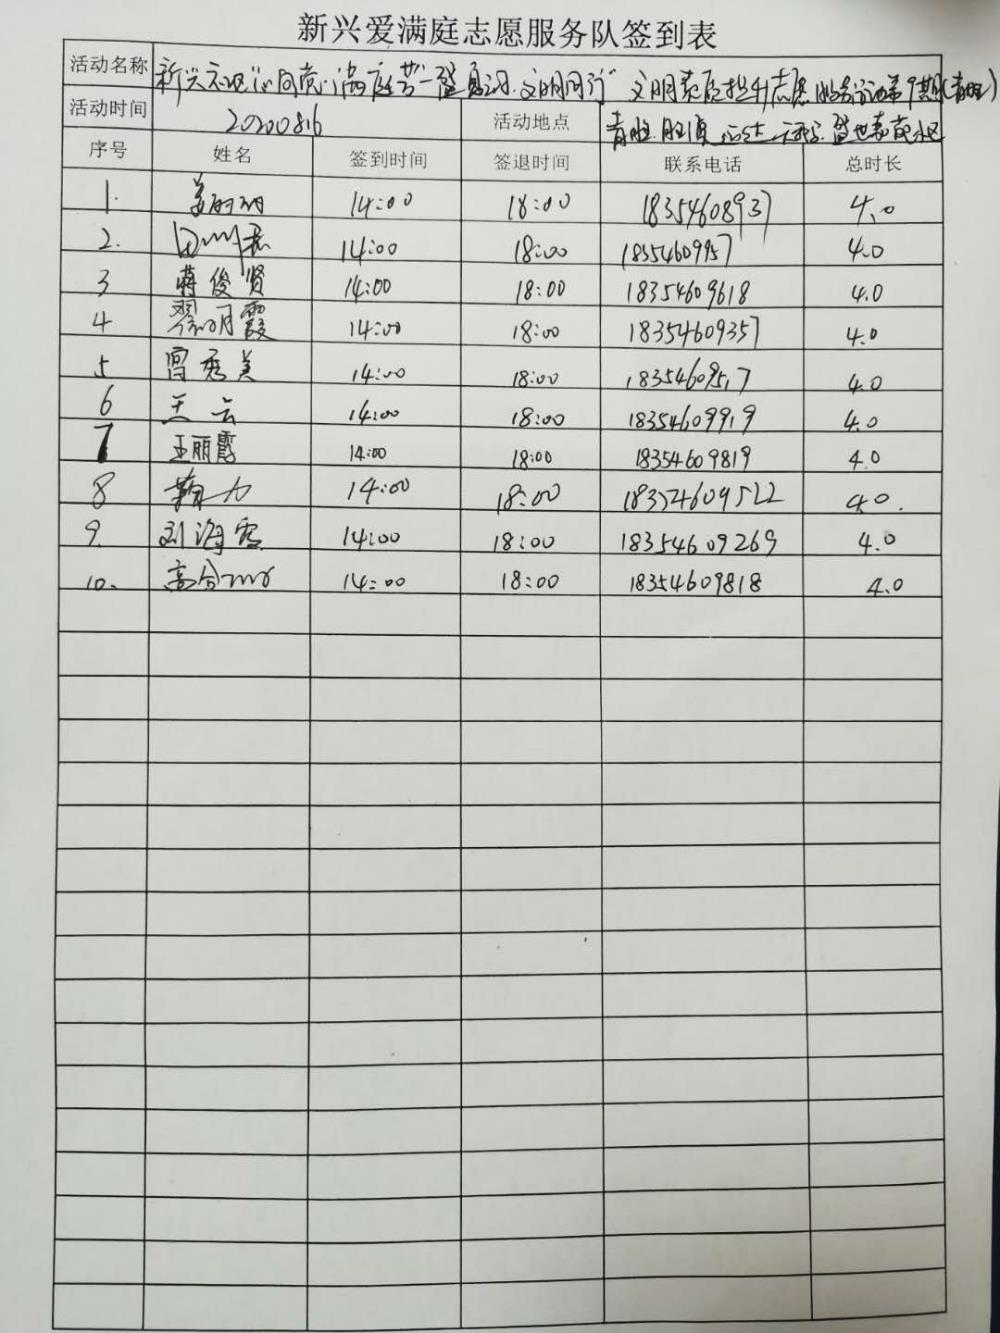 新兴爱满庭志愿服务队签到表
活动名称 新兴社区"心向党 满庭芳" 文明同行" 文明素质提升志愿服务活动第9期
活动时间 20200816 活动地点 青胜 胜贞 远达
序号 姓名 签到时间 签退时间 联系电话 总时长
1. 14:00 18:00 18354608937 4.0
2. 14:00 18:00 18354609957 4.0
3 蒋俊贤 14:00 18:00 18354609618 4.0
4 明霞 14:00 18:00 18354609357 4.0
5 秀美 14:00 18:00 18354609517 4.0
6 王云 14:00 18:00 18354609919 4.0
7 王丽霞 14:00 18:00 18354609819 4.0
8 14:00 18:00 18354609522 4.0.
9. 刘海霞 14:00 18:00 18354609269 4.0
10. 高 14:00 18:00 18354609818 4.0